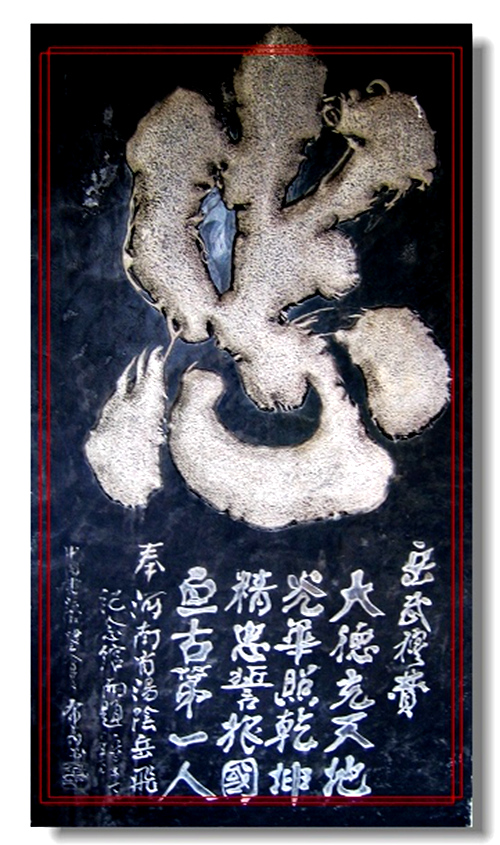 忠
岳武穆贊
大德充天地
光華照乾坤
精忠誓报國
亘古第一人
奉河南省湯陰岳飛
紀念館而題